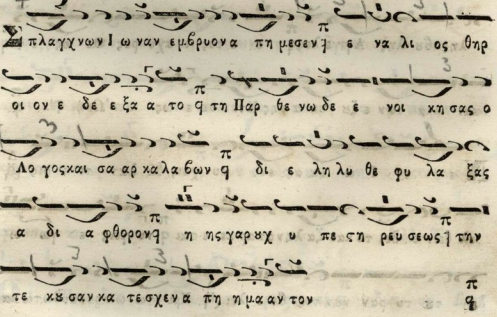 Σπλαγχνων Ι ω ναν εμβρυον α πη μεσεν π ε να λι ος θηρ
οι ον ε δε ε ξα α το π τη Παρ θε νω δε ε νοι κη σας ο
Λο γος και σα αρ κα λα βων π δι ε λη λυ θε φυ λα ξας
α δι α φθορον π η ης γαρ ȣχ υ πε ϛη ρευ σεως π την
τε κȣ σαν κα τε σχεν α πη η μα αν τον π